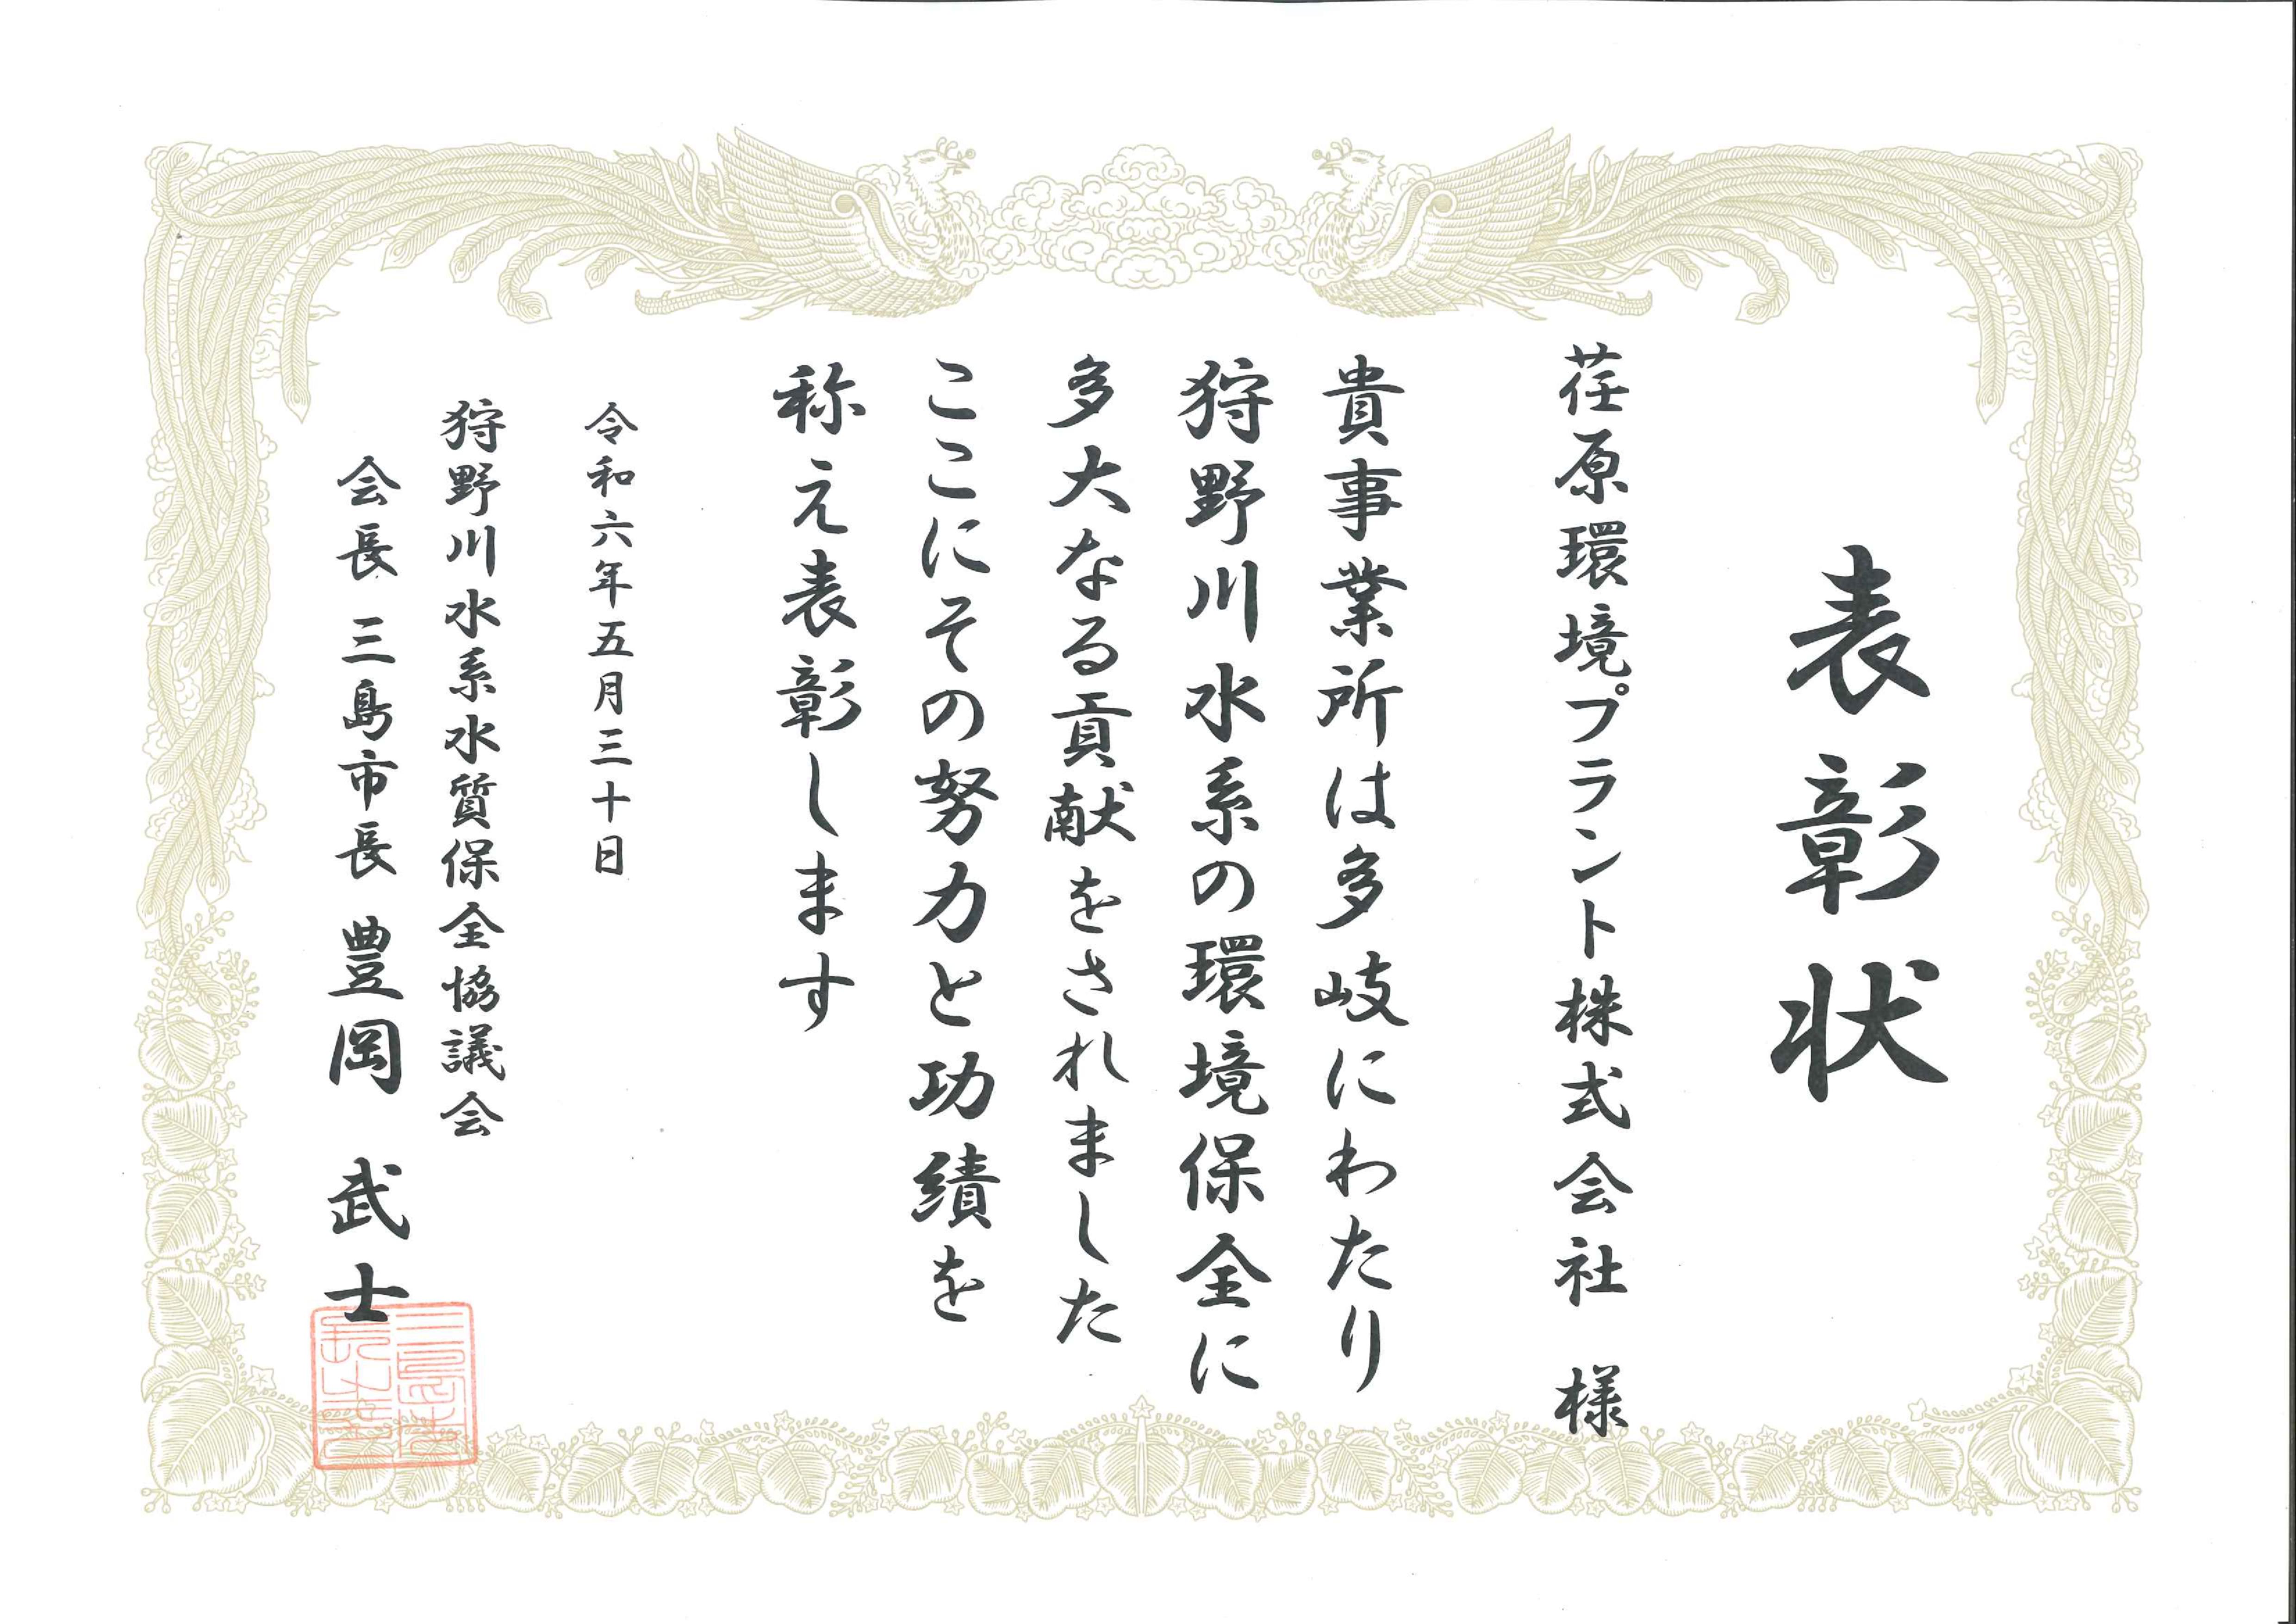 表彰状
荏原環境プラント株式会社 様
貴事業所は多岐にわたり
狩野川水系の環境保全に
多大なる貢献をされました
ここにその努力と功績を
称え表彰します
令和六年五月三十日
狩野川水系水質保全協議会
会長 三島市長 豊岡 武士
三島市長之印